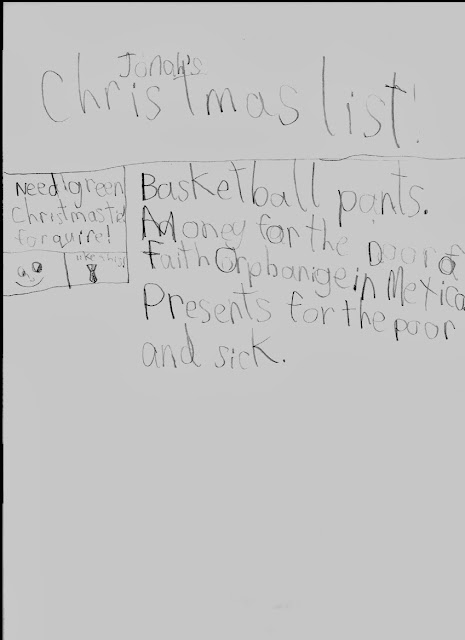 Jonah's
Christmas list!
Need green
Christmas tie
for quire!
like this!
Basketball pants.
Money for the Door of
Faith Orphanige in Mexico
Presents for the poor
and sick.